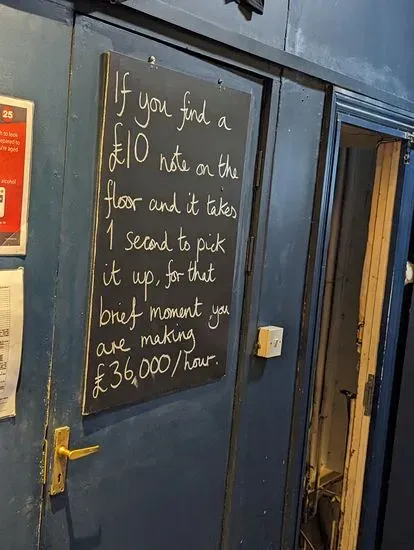 If you find a
£10 note on the
floor and it takes
1 second to pick
it up, for that
brief moment, you
are making
£36,000/hour.
25
alcohol